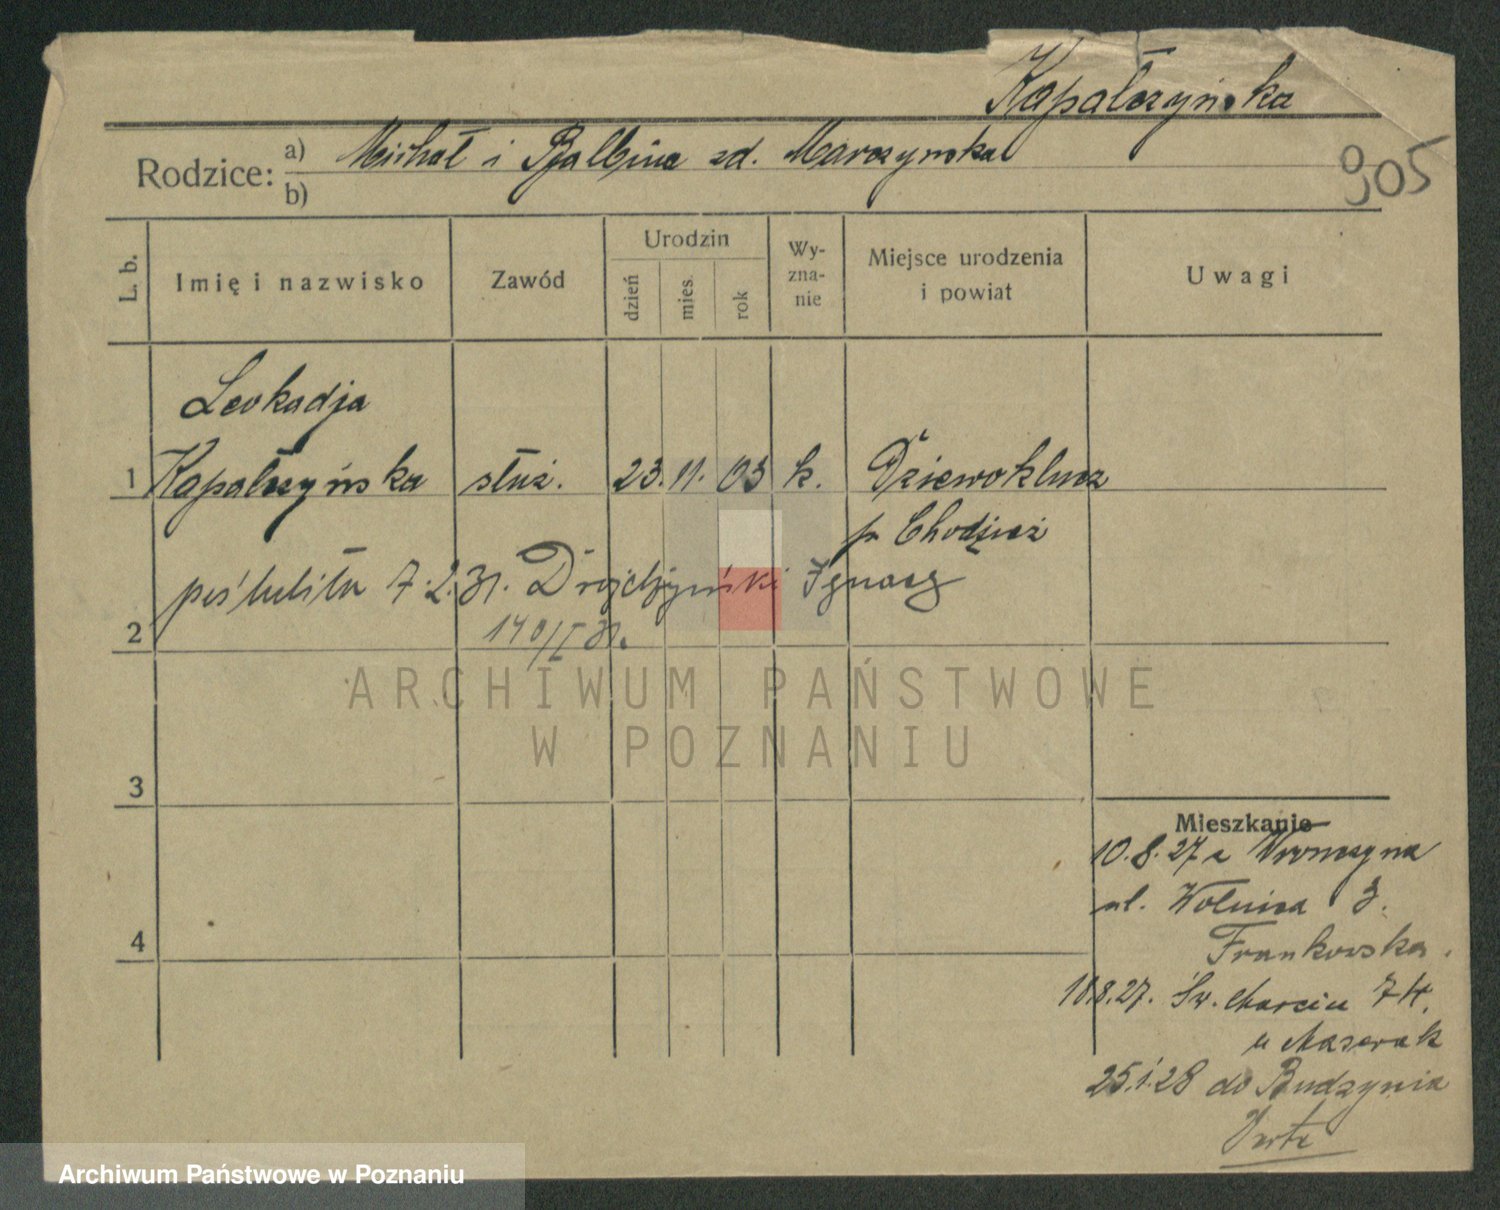 Kapałczyńska
Rodzice: a) Michał i Balbina zd. Marczyńska
b)
905
L. b.
Imię i nazwisko
Zawód
Urodzin
dzień
mies.
rok
Wy-
zna-
nie
Miejsce urodzenia
i powiat
Uwagi
Leokadja
1 Kapałczyńska służ. 23. 11. 03 k. Dziewoklucz
p. Chodzież
poślubiła 7.2.31. Ignacy
2
140/I 31.
ARCHIWUM PAŃSTWOWE
W POZNANIU
3
Mieszkanie
10.8.27 z
ul. Wolnica 3.
Frankowska.
4
18.8.27. Św. Marcin 74.
u Mazurak
25.1.28 do Budzynia
Verte
Archiwum Państwowe w Poznaniu